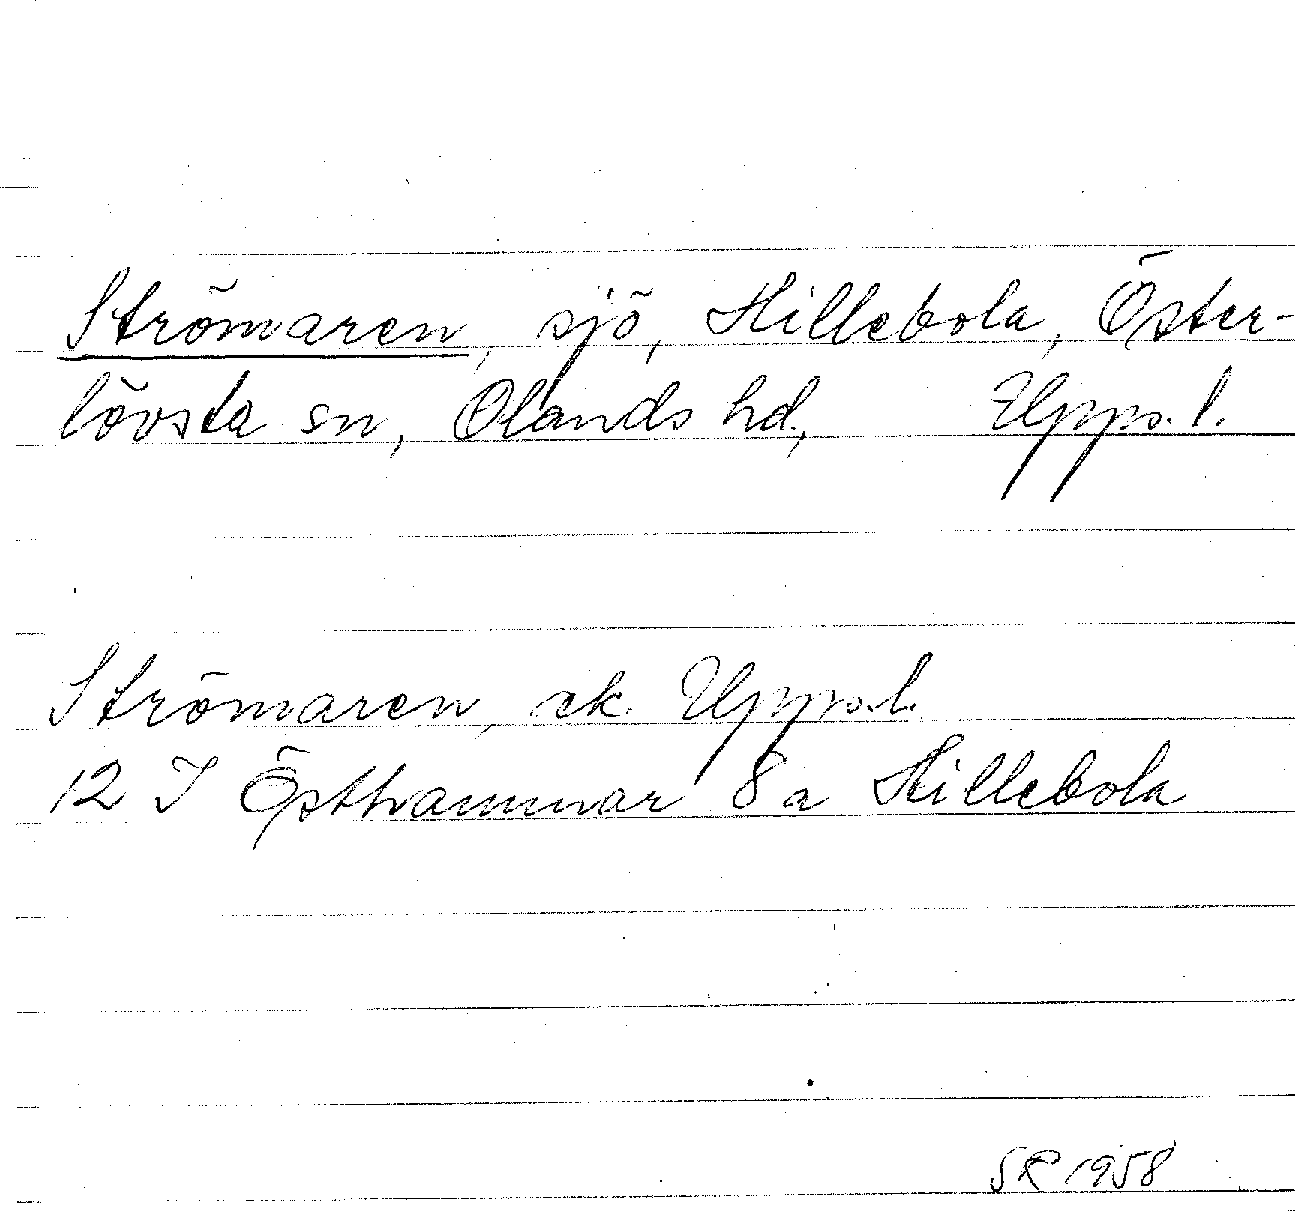 Strömaren, sjö, Hillebola, Öster-
lövsta sn, Olands hd, Upps. l.
Strömaren, ek. Upps.l.
12 I Östhammar 8 a Hillebola
SR 1958